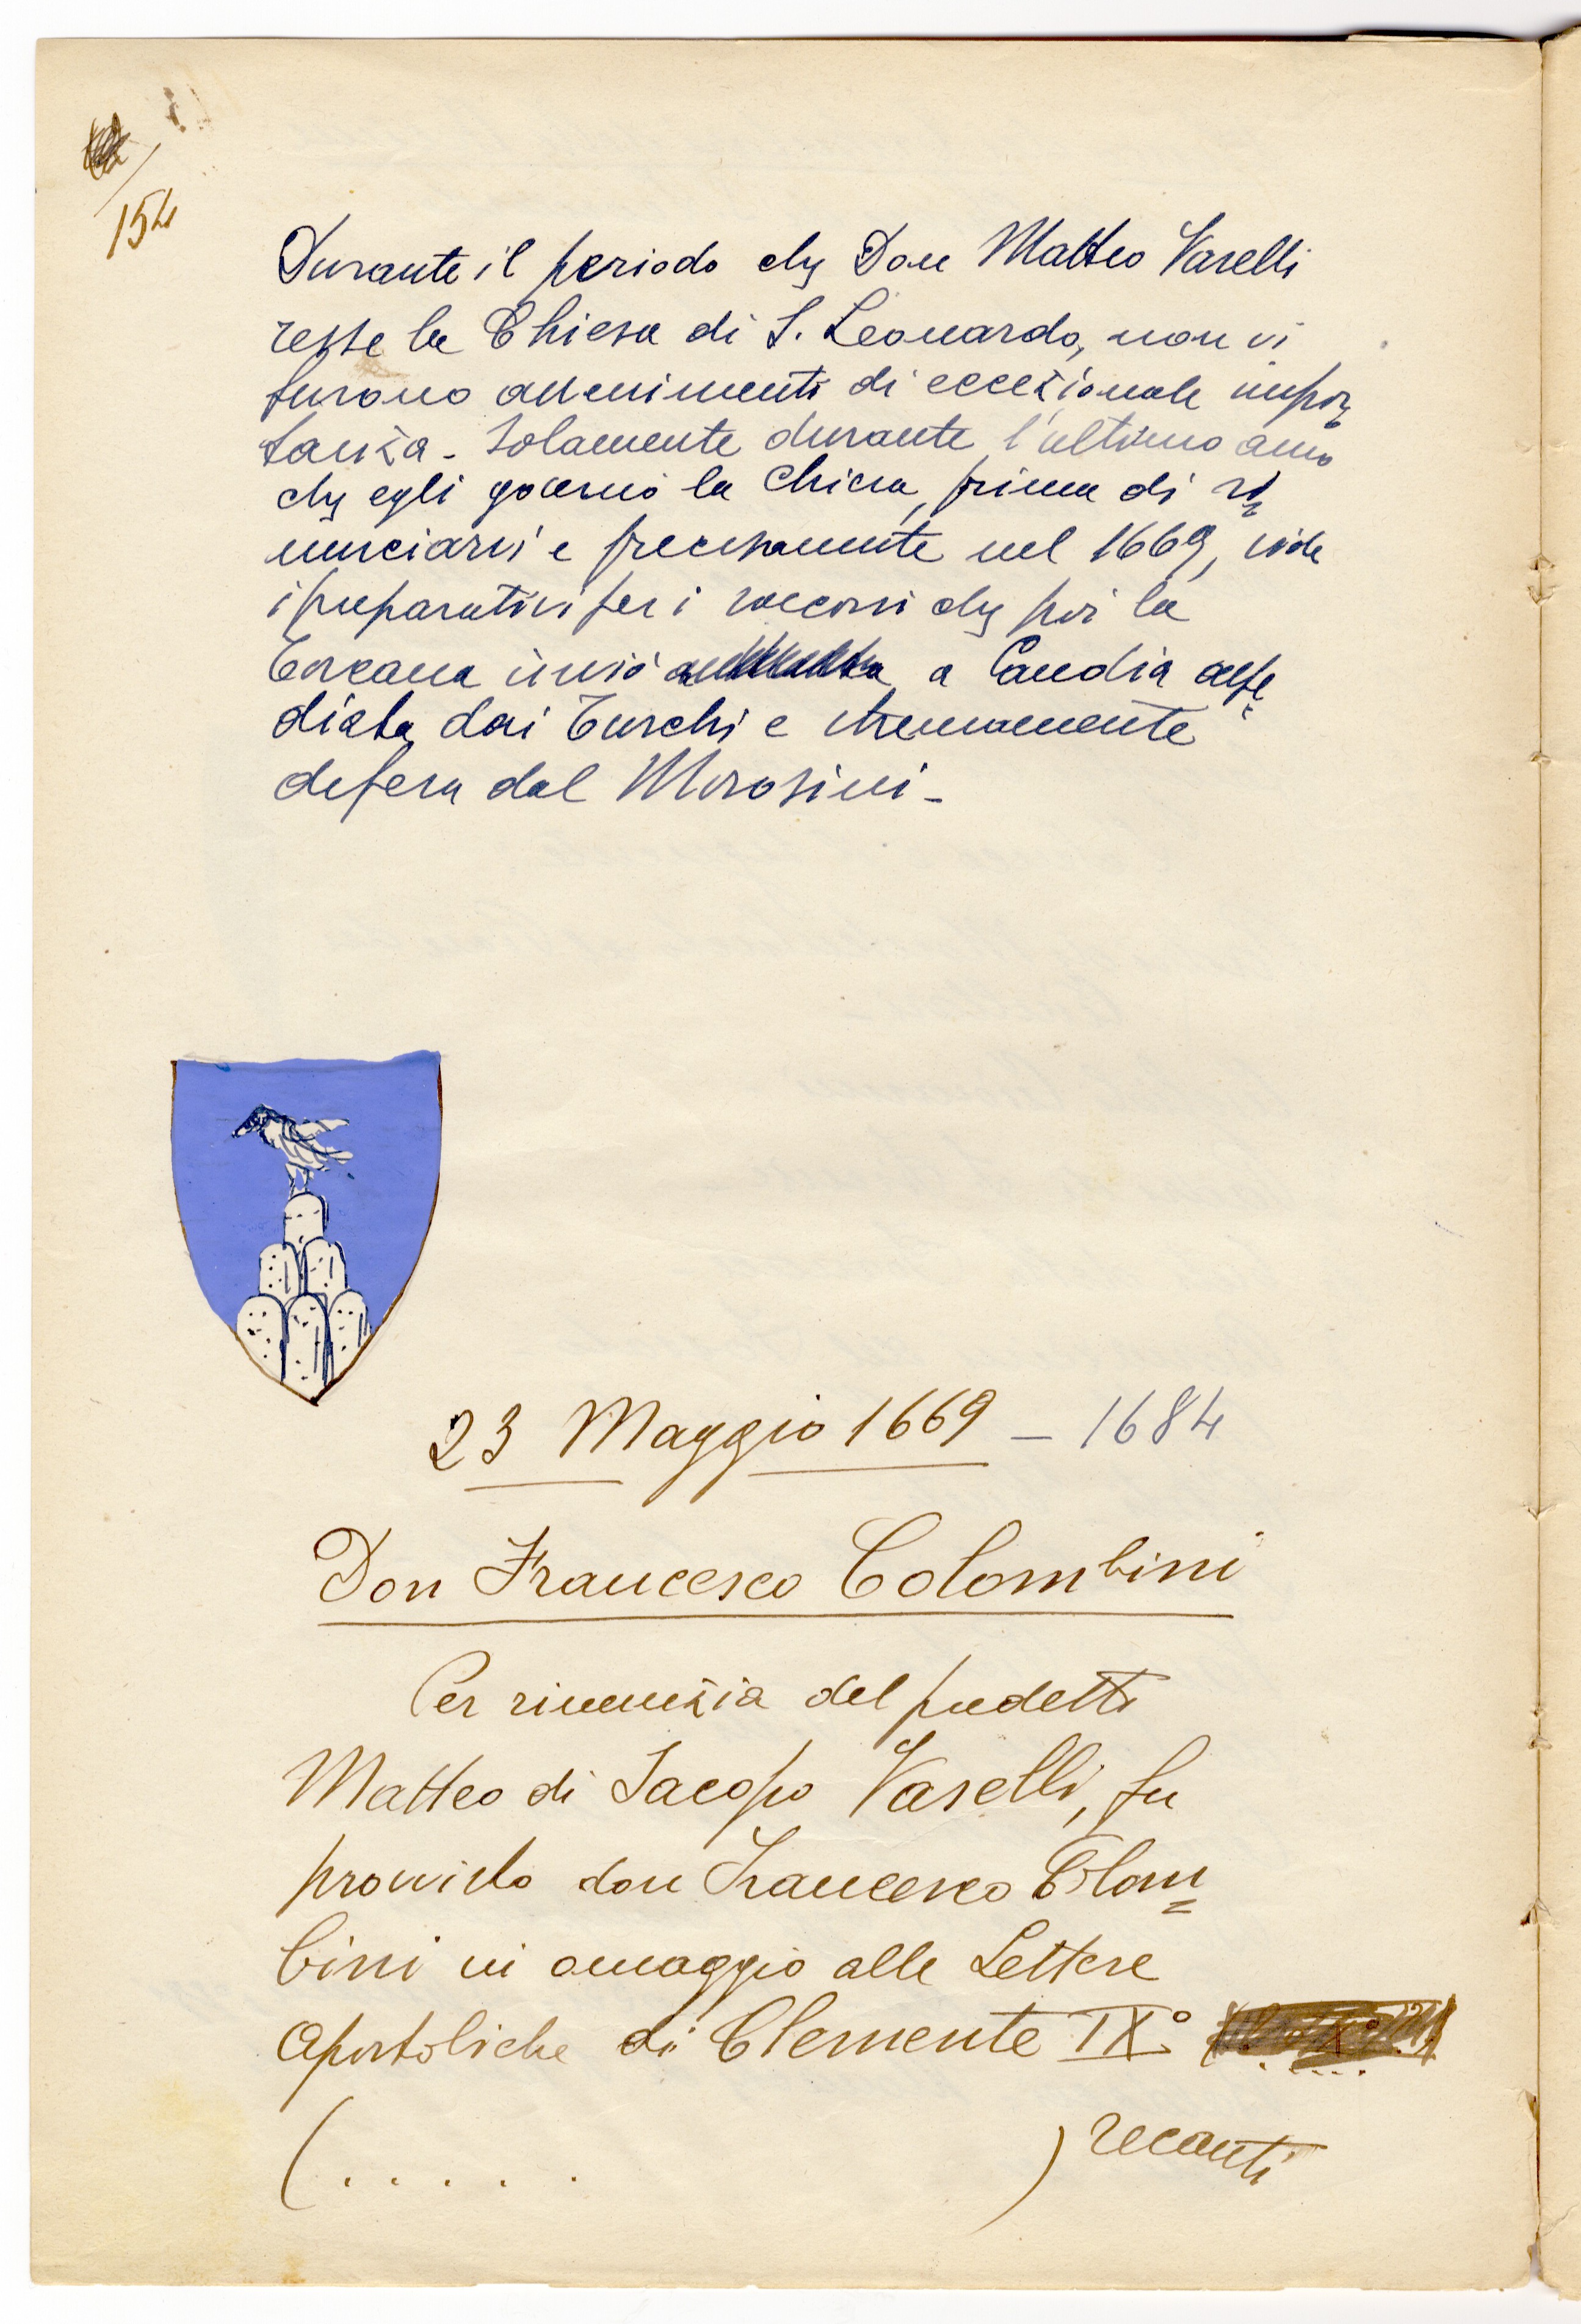 154
Durante il periodo che Don Matteo Vaselli
resse la Chiesa di S. Leonardo, non vi
furono avvenimenti di eccezionale impor=
tanza - Solamente durante l'ultimo anno
che egli governò la Chiesa, prima di ri=
nunciarvi e precisamente nel 1669, vide
i preparativi per i soccorsi che poi la
Toscana inviò a Candia asse=
diata dai Turchi e strenuamente
difesa dal Morosini -
23 Maggio 1669 - 1684
Don Francesco Colombini
Per rinunzia del predetto
Matteo di Jacopo Vaselli, fu
provvisto don Francesco Colom=
bini in omaggio alle Lettere
Apostoliche di Clemente IX°
(. . . . . ) recanti